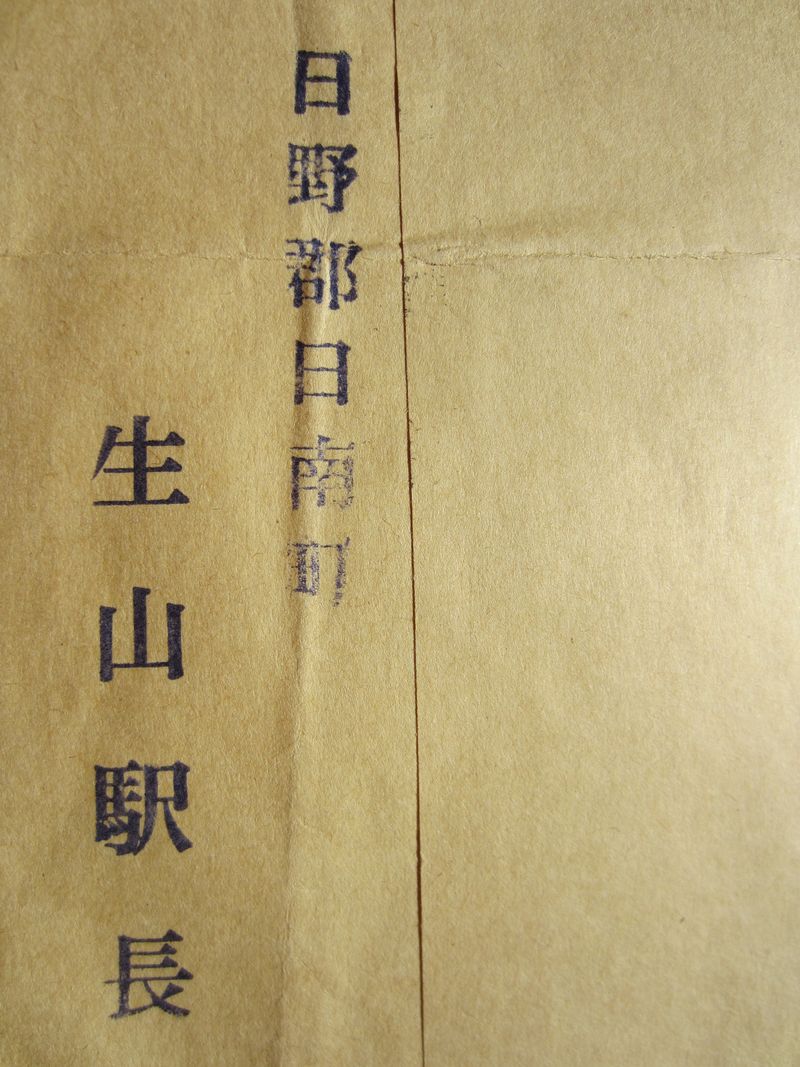 日野郡日南町
生山駅長